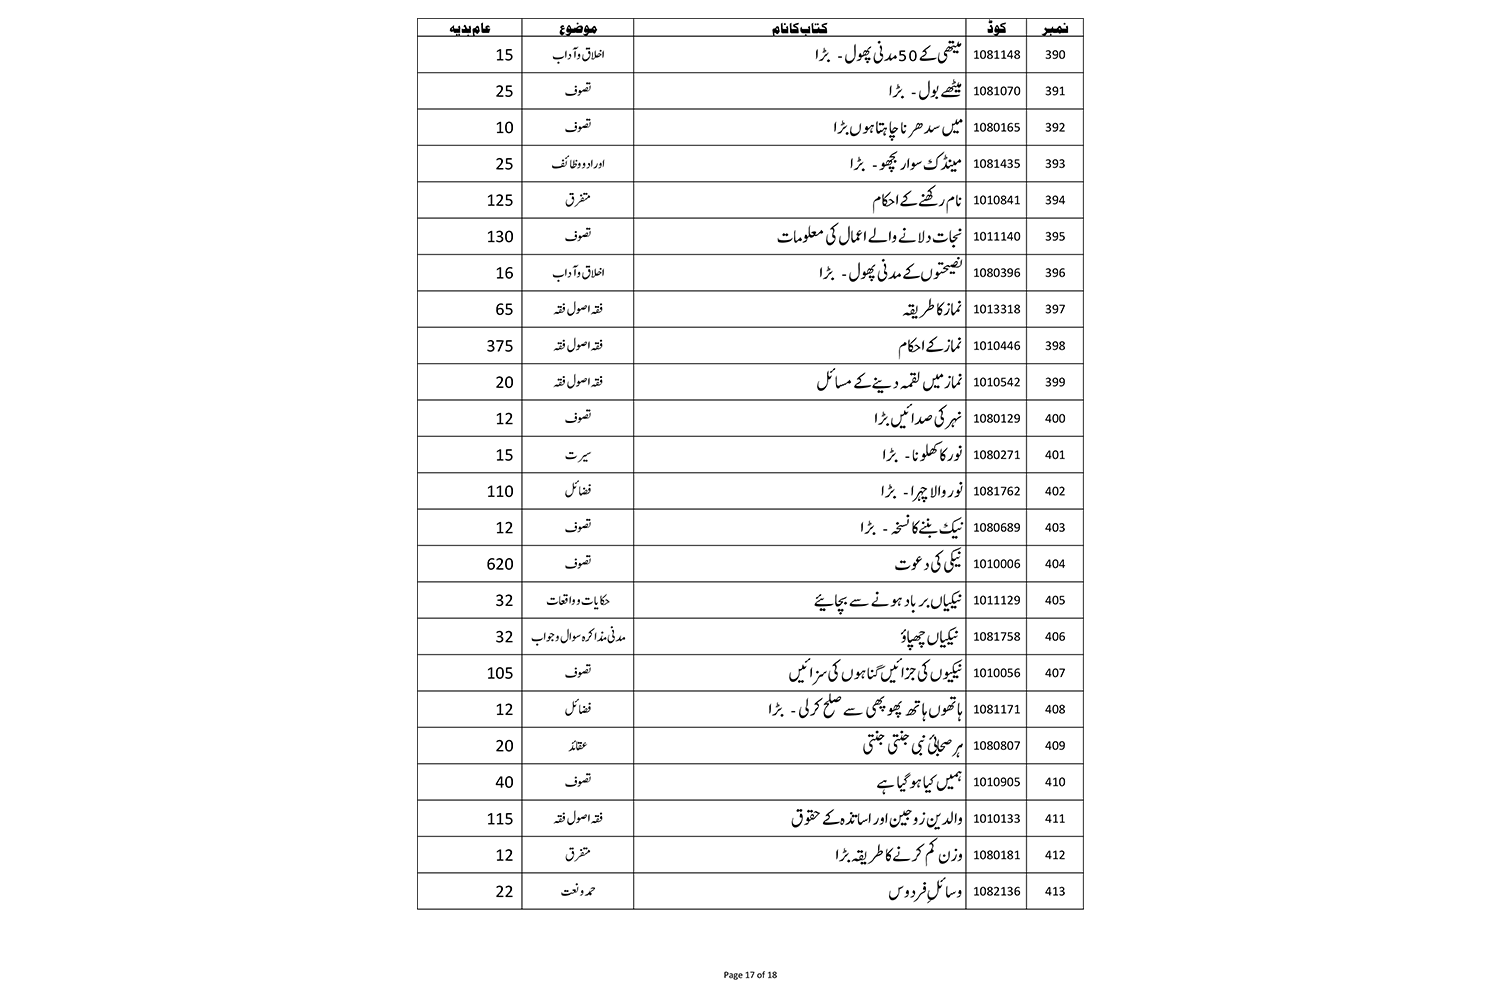 نمبر کوڈ کتاب کا نام موضوع عام ہدیہ
390 1081148 میتھی کے 50 مدنی پھول - بڑا اخلاق و آداب 15
391 1081070 میٹھے بول - بڑا تصوف 25
392 1080165 میں سدھرنا چاہتا ہوں بڑا تصوف 10
393 1081435 مینڈک سوار بچھو - بڑا اوراد و وظائف 25
394 1010841 نام رکھنے کے احکام متفرق 125
395 1011140 نجات دلانے والے اعمال کی معلومات تصوف 130
396 1080396 نصیحتوں کے مدنی پھول - بڑا اخلاق و آداب 16
397 1013318 نماز کا طریقہ فقہ اصول فقہ 65
398 1010446 نماز کے احکام فقہ اصول فقہ 375
399 1010542 نماز میں لقمہ دینے کے مسائل فقہ اصول فقہ 20
400 1080129 نہر کی صدائیں بڑا تصوف 12
401 1080271 نور کا کھلونا - بڑا سیرت 15
402 1081762 نور والا چہرا - بڑا فضائل 110
403 1080689 نیک بننے کا نسخہ - بڑا تصوف 12
404 1010006 نیکی کی دعوت تصوف 620
405 1011129 نیکیاں برباد ہونے سے بچائیے حکایات و واقعات 32
406 1081758 نیکیاں چھپاؤ مدنی مذاکرہ سوال و جواب 32
407 1010056 نیکیوں کی جزائیں گناہوں کی سزائیں تصوف 105
408 1081171 ہاتھوں ہاتھ پھوپھی سے صلح کرلی - بڑا فضائل 12
409 1080807 ہر صحابیٔ نبی جنتی جنتی عقائد 20
410 1010905 ہمیں کیا ہو گیا ہے تصوف 40
411 1010133 والدین زوجین اور اساتذہ کے حقوق فقہ اصول فقہ 115
412 1080181 وزن کم کرنے کا طریقہ بڑا متفرق 12
413 1082136 وسائلِ فردوس حمد و نعت 22
Page 17 of 18